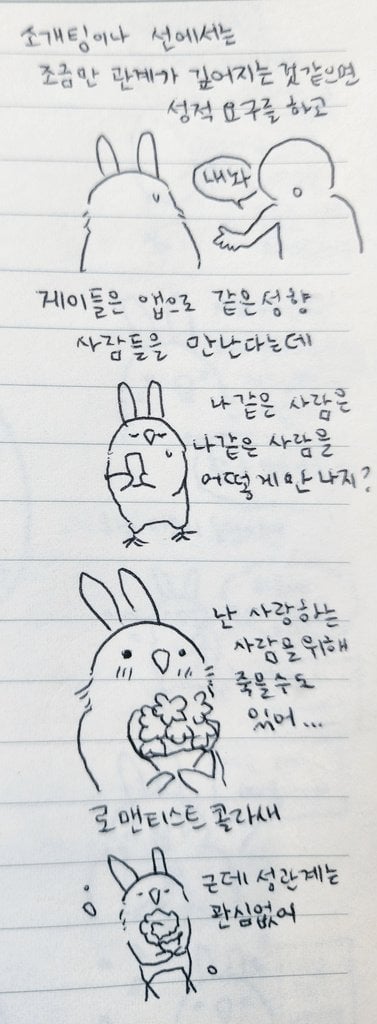 소개팅이나 선에서는
조금만 관계가 깊어지는 것같으면
성적 요구를 하고
내놔
게이들은 앱으로 같은성향
사람들을 만난다는데
나같은 사람은
나같은 사람을
어떻게만나지?
난 사랑하는
사람을위해
죽을수도
있어...
로맨티스트콜라새
근데 성관계는
관심없어